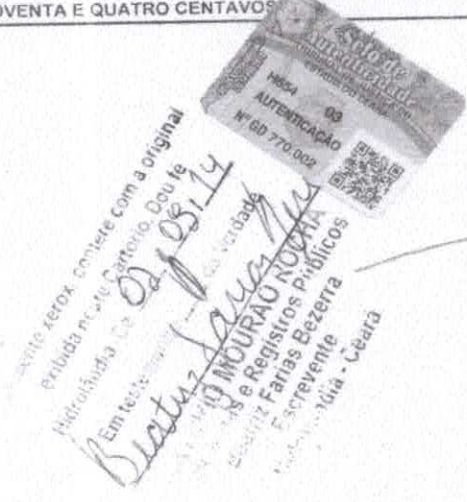 OVENTA E QUATRO CENTAVOS
Selo de
Autenticidade
ESTADO DO CEARÁ
H654 03
AUTENTICAÇÃO
Nº GD 770.002
xerox, confere com a original
exibida neste Cartorio. Dou fe
Hidrolândia, Ce 02, 05, 14
Em testemunho da verdade
Beatriz Farias
MOURÃO ROCHA
s e Registros Públicos
Beatriz Farias Bezerra
Escrevente
Hidrolândia - Ceará